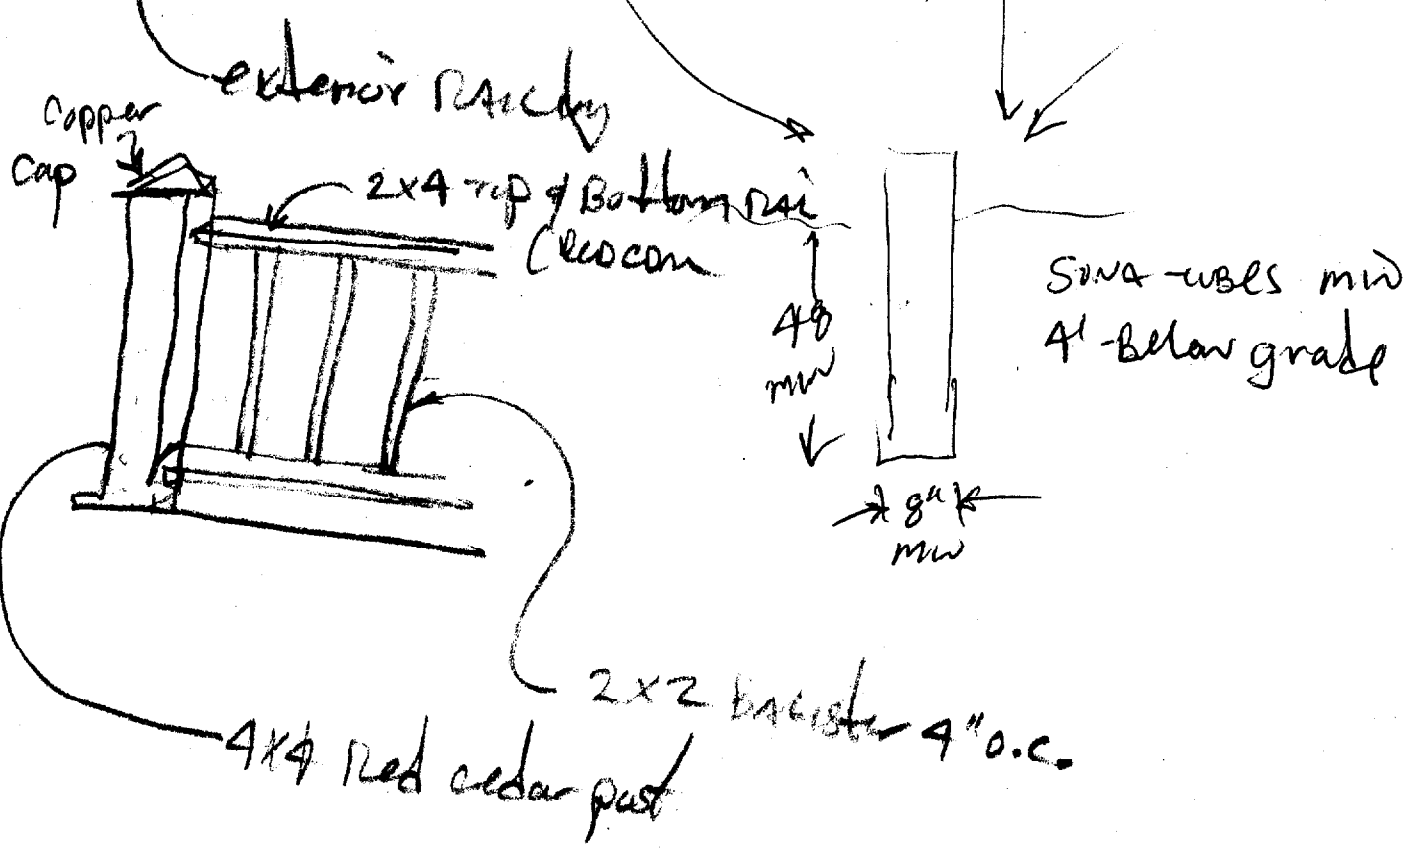 exterior Railing
Copper
Cap
2x4 Top & Bottom Rail
48
min
8"
min
Sona-tubes min
4' -Below grade
2x2 Balister 4" o.c.
4x4 Red cedar post